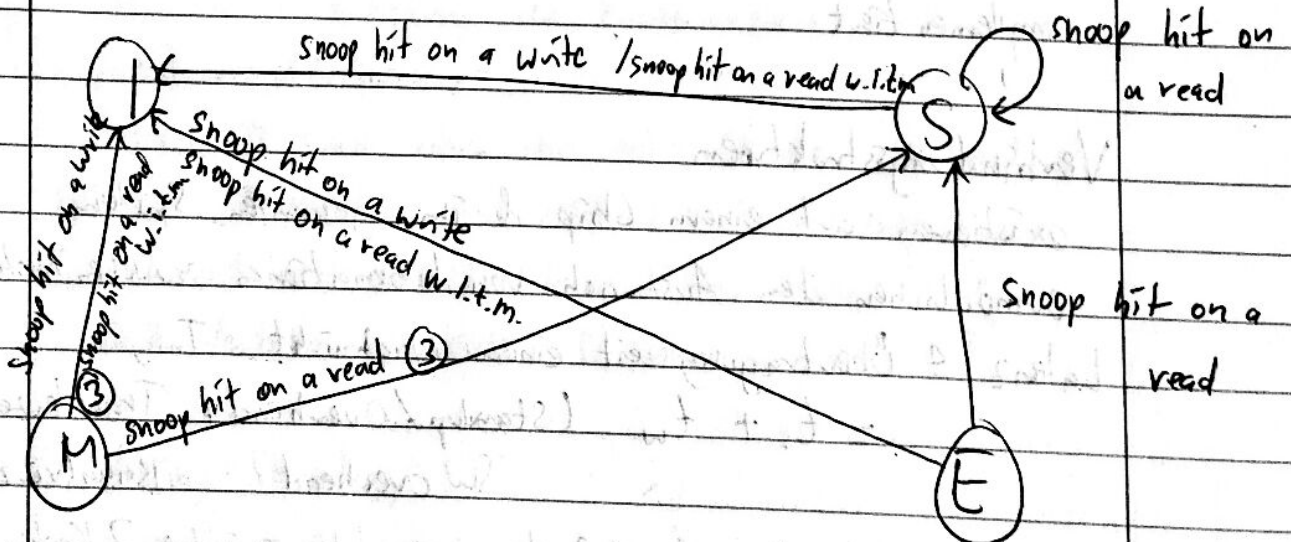 snoop hit on
a read
snoop hit on a write / snoop hit on a read w.i.t.m
I
S
snoop hit on a write
snoop hit on a read w.i.t.m.
snoop hit on a write
snoop hit on a read
w.i.t.m
③
snoop hit on a read ③
snoop hit on a
read
M
E